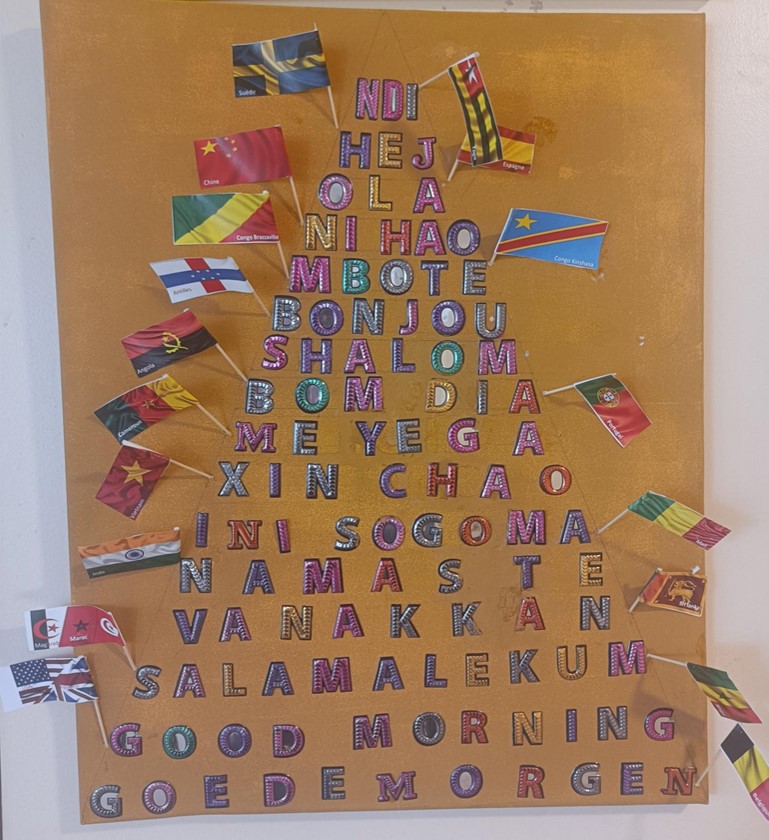 Suède
NDI
HEJ
Espagne
Chine
OLA
Congo Brazzaville
NI HAO
Congo Kinshasa
Antilles
MBOTE
BONJOU
Angola
SHALOM
BOM DIA
Portugal
Cameroun
ME YEGA
XIN CHAO
INI SOGOMA
Inde
NAMASTE
Sri lanka
VANAKKAN
Maroc
SALAMALEKUM
GOOD MORNING
GOEDEMORGEN
Belgique